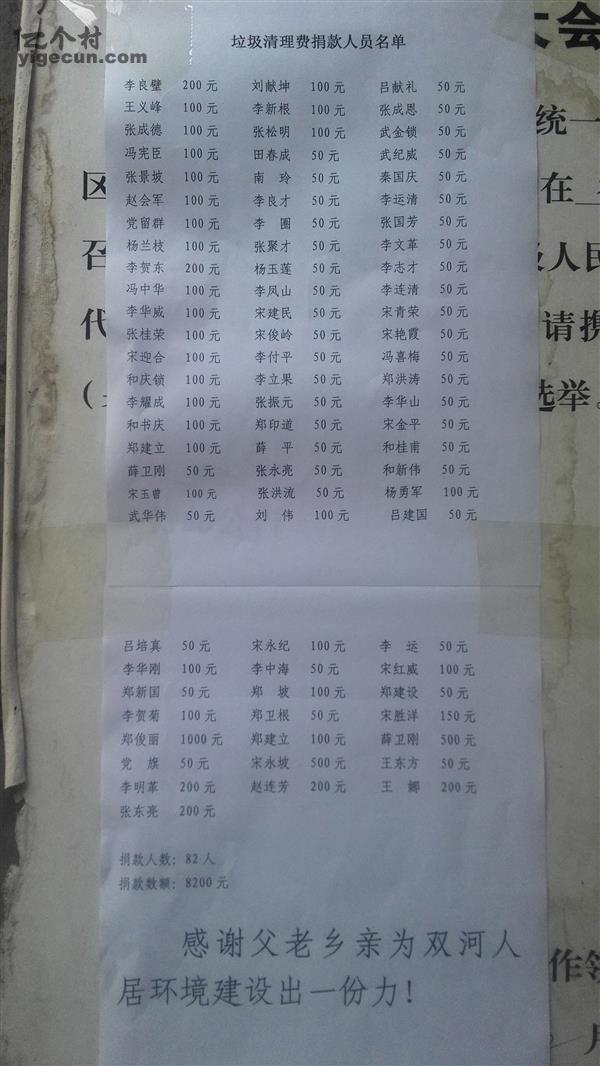 亿个村
yigecun.com
垃圾清理费捐款人员名单
李良璧 200元 刘献坤 100元 吕献礼 50元
王义峰 100元 李新根 100元 张成恩 50元
张成德 100元 张松明 100元 武金锁 50元
冯宪臣 100元 田春成 50元 武纪威 50元
张景坡 100元 南 玲 50元 秦国庆 50元
赵会军 100元 李良才 50元 李运清 50元
党留群 100元 李 圈 50元 张国芳 50元
杨兰枝 100元 张聚才 50元 李文革 50元
李贺东 200元 杨玉莲 50元 李志才 50元
冯中华 100元 李凤山 50元 李连清 50元
李华威 100元 宋建民 50元 宋青荣 50元
张桂荣 100元 宋俊岭 50元 宋艳霞 50元
宋迎合 100元 李付平 50元 冯喜梅 50元
和庆锁 100元 李立果 50元 郑洪涛 50元
李耀成 100元 张振元 50元 李华山 50元
和书庆 100元 郑印道 50元 宋金平 50元
郑建立 100元 薛 平 50元 和桂甫 50元
薛卫刚 50元 张永亮 50元 和新伟 50元
宋玉曾 100元 张洪流 50元 杨勇军 100元
武华伟 50元 刘 伟 100元 吕建国 50元
吕培真 50元 宋永纪 100元 李 运 50元
李华刚 100元 李中海 50元 宋红威 100元
郑新国 50元 郑 坡 100元 郑建设 50元
李贺菊 100元 郑卫根 50元 宋胜洋 150元
郑俊丽 1000元 郑建立 100元 薛卫刚 500元
党 旗 50元 宋永坡 500元 王东方 50元
李明革 200元 赵连芳 200元 王 娜 200元
张东亮 200元
捐款人数：82人
捐款数额：8200元
感谢父老乡亲为双河人
居环境建设出一份力！
大会
统一
区 在
召 级人民
代 请携
（ 选举。
作领
月